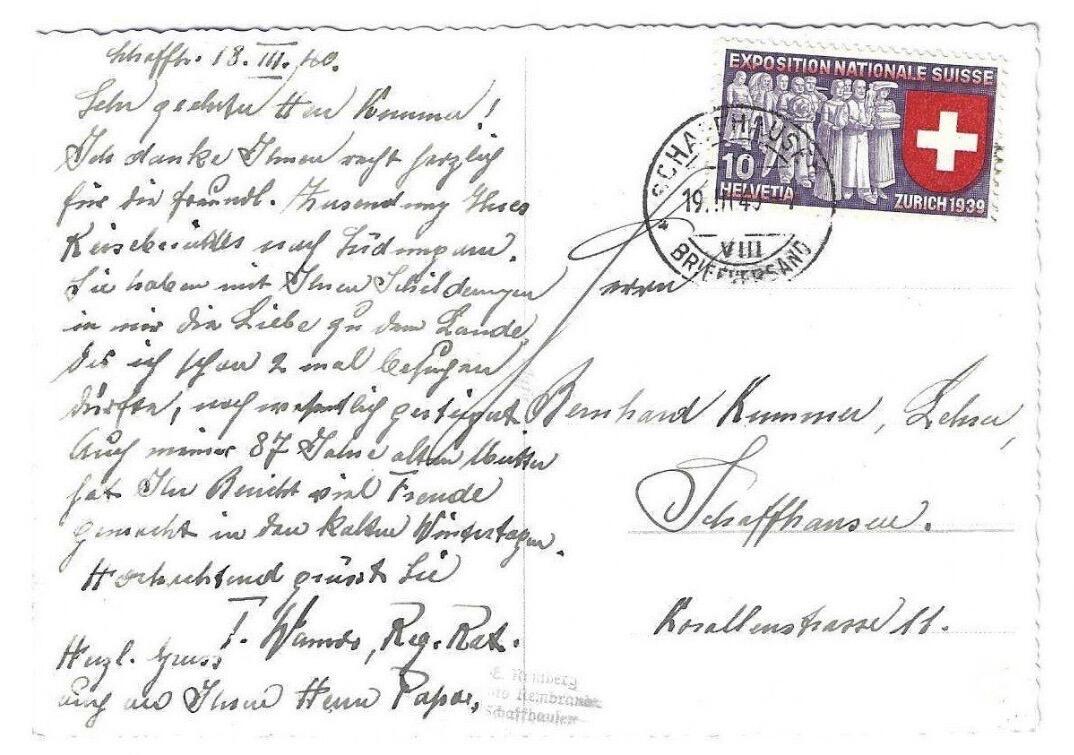 Schaffh. 18. III. 40.
Sehr geehrter Herr Kummer!
Ich danke Ihnen recht herzlich
für die freundl. Zusendung Ihres
Reiseberichtes nach Südungarn.
Sie haben mit Ihren Schilderungen
in mir die Liebe zu dem Lande,
das ich schon 2 mal besuchen
durfte, noch wesentlich gesteigert.
Auch meiner 87 Jahre alten Mutter
hat Ihr Bericht viel Freude
gemacht in den kalten Wintertagen.
Hochachtend grüsst Sie
T. Reg. Rat.
Herzl. Gruss
auch an Ihren Herrn Papa.
EXPOSITION NATIONALE SUISSE
10
HELVETIA
ZURICH 1939
SCHAFFHAUSEN
19. III 40
VIII
BRIEFVERSAND
Herrn
Bernhard Kummer, Lehrer,
Schaffhausen.
Korallenstrasse 11.
Rembrandt
Schaffhausen